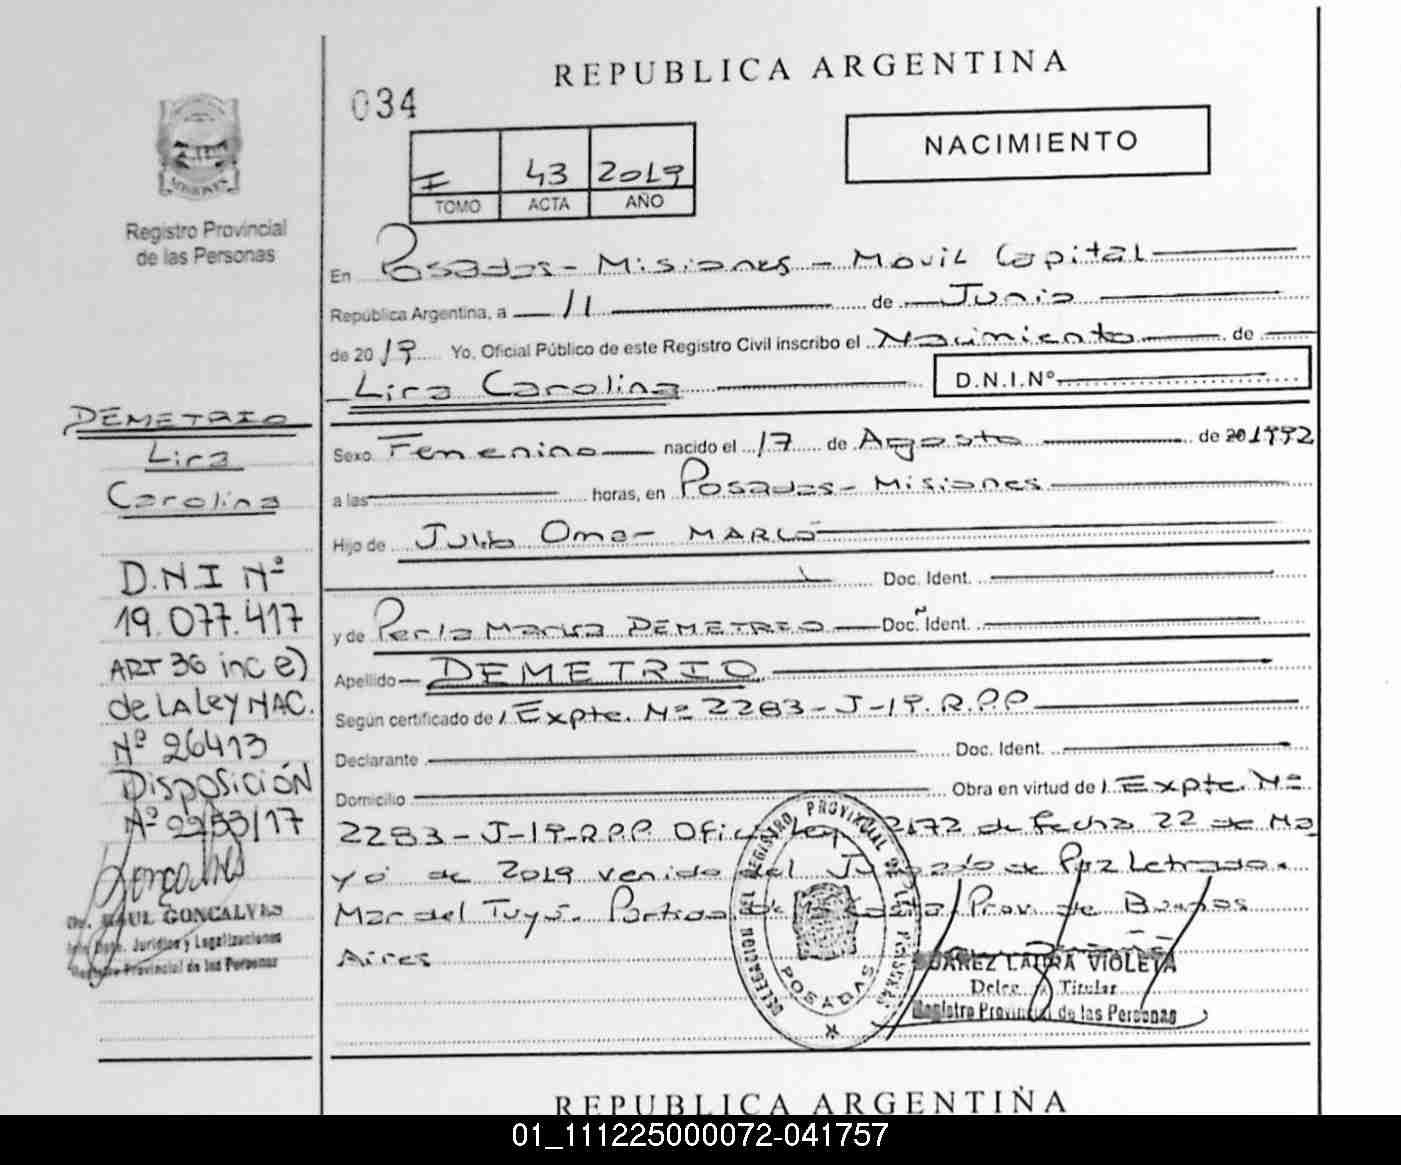 REPUBLICA ARGENTINA
034
NACIMIENTO
I 43 2019
TOMO ACTA AÑO
MISIONES
Registro Provincial
de las Personas
En Posadas - Misiones - Movil Capital
República Argentina, a 11 de Junio
de 2019 Yo, Oficial Público de este Registro Civil inscribo el Nacimiento de
Lira Carolina D.N.I.Nº
Sexo Femenino nacido el 17 de Agosto de 20 1992
a las horas, en Posadas - Misiones
Hijo de Julio Omar
Doc. Ident.
y de Perla Marisa DEMETRIO Doc. Ident.
Apellido DEMETRIO
Según certificado de Expte. Nº 2283-J-19.R.P.P
Declarante Doc. Ident.
Domicilio Obra en virtud de Expte. Nº
2283-J-19-R.P.P. 2172 de fecha 22 de Ma
yo de 2019 venido del Juzgado de Paz Letrado.
Mar del Tuyú. Partido de la Costa Prov. de Buenos
Aires
DEMETRIO
Lira
Carolina
D.N.I Nº
19.077.417
ART 36 inc e)
de LA Ley NAC.
Nº 26413
Disposición
Nº 2253/17
RAUL GONCALVES
Dpto. Jurídico y Legalizaciones
Registro Provincial de las Personas
DELEGACION DEL REGISTRO PROVINCIAL DE LAS PERSONAS
POSADAS
SUAREZ LAURA VIOLETA
Titular
Registro Provincial de las Personas
REPUBLICA ARGENTINA
01_111225000072-041757